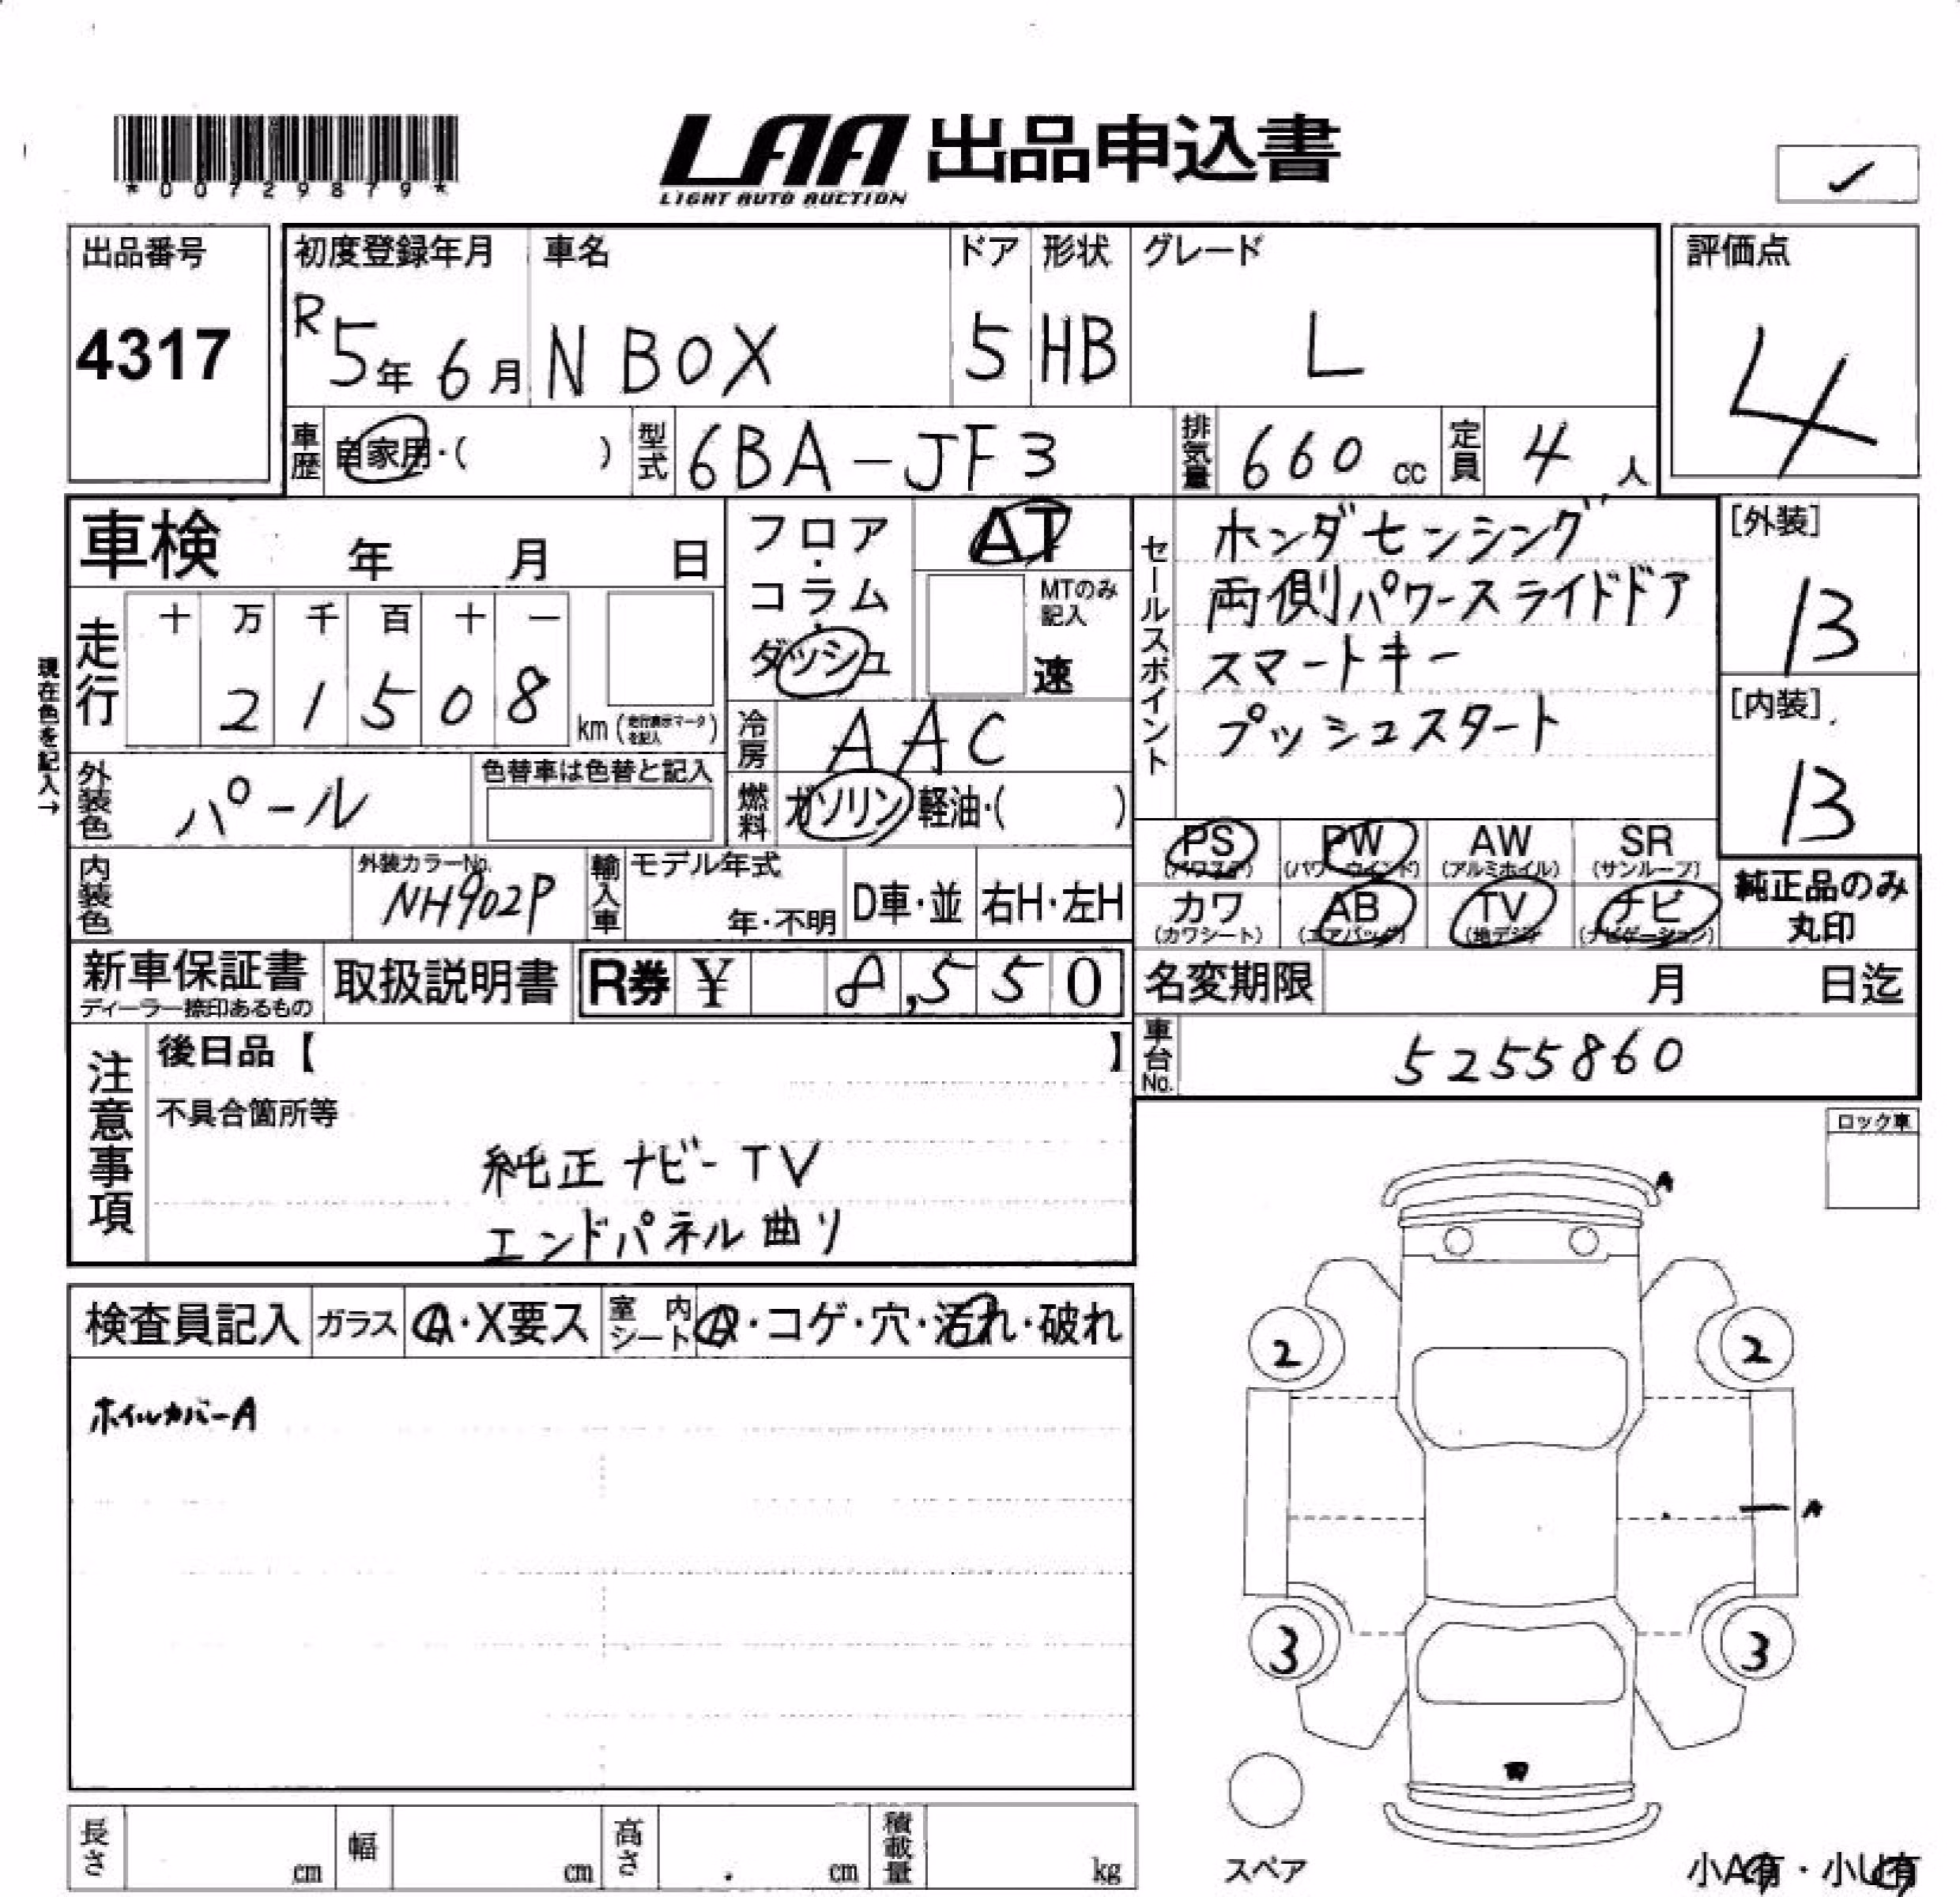 *00729879*
LAA 出品申込書
LIGHT AUTO AUCTION
✓
出品番号
4317
初度登録年月
R5年6月
車名
N BOX
ドア
5
形状
HB
グレード
L
評価点
4
車歴
自家用・( )
型式
6BA-JF3
排気量
660 cc
定員
4 人
車検 年 月 日
現在色を記入→
走行
十 万 千 百 十 一
2 1 5 0 8
km (走行表示マークを記入)
フロア・
コラム・
ダッシュ
AT
MTのみ
記入
速
冷房
AAC
燃料
ガソリン・軽油・( )
セールスポイント
ホンダセンシング
両側パワースライドドア
スマートキー
プッシュスタート
[外装]
13
[内装]
13
外装色
パール
色替車は色替と記入
内装色
外装カラーNo.
NH902P
輸入車
モデル年式
年・不明
D車・並
右H・左H
PS
(パワステ)
PW
(パワーウインド)
AW
(アルミホイル)
SR
(サンルーフ)
カワ
(カワシート)
AB
(エアバッグ)
TV
(地デジ)
ナビ
(ナビゲーション)
純正品のみ
丸印
新車保証書
ディーラー捺印あるもの
取扱説明書
R券 ¥ 8,550
名変期限 月 日迄
車台No.
5255860
注意事項
後日品【 】
不具合箇所等
純正ナビ-TV
エンドパネル曲り
ロック車
検査員記入
ガラス
A・X要ス
室内シート
A・コゲ・穴・汚れ・破れ
ホイルカバーA
A
2
2
A
3
3
スペア
小A有・小U有
長さ cm
幅 cm
高さ cm
積載量 kg